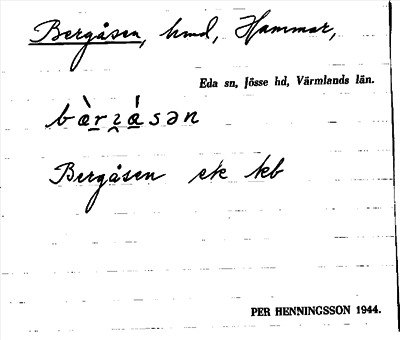 Bergåsen, hmd, Hammar,
Eda sn, Jösse hd, Värmlands län.
Bergåsen ek kb
PER HENNINGSSON 1944.